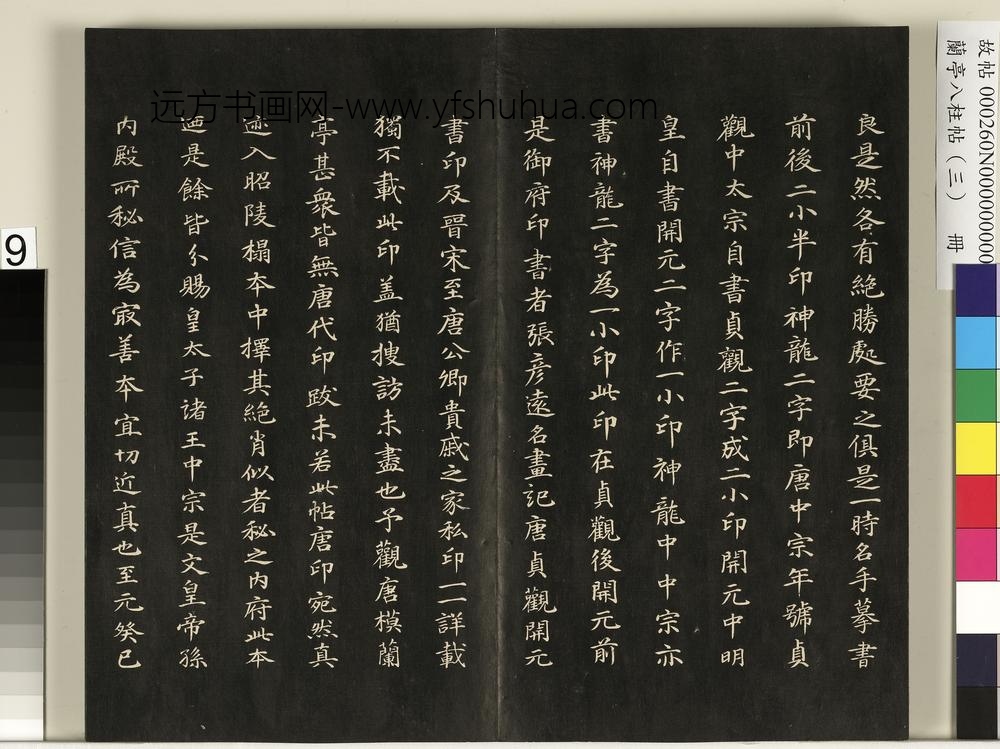 良是然各有絶勝處要之俱是一時名手摹書
前後二小半印神龍二字即唐中宗年號貞
觀中太宗自書貞觀二字成二小印開元中明
皇自書開元二字作一小印神龍中中宗亦
書神龍二字為一小印此印在貞觀後開元前
是御府印書者張彥遠名畫記唐貞觀開元
書印及晉宋至唐公卿貴戚之家私印一一詳載
獨不載此印盖猶搜訪未盡也予觀唐模蘭
亭甚衆皆無唐代印跋未若此帖唐印宛然真
迹入昭陵榻本中擇其絶肖似者秘之内府此本
迺是餘皆分賜皇太子諸王中宗是文皇帝孫
内殿所秘信為㝡善本宜切近真也至元癸巳
远方书画网-www.yfshuhua.com
故帖 000260N000000000
蘭亭八柱帖（三） 冊
9